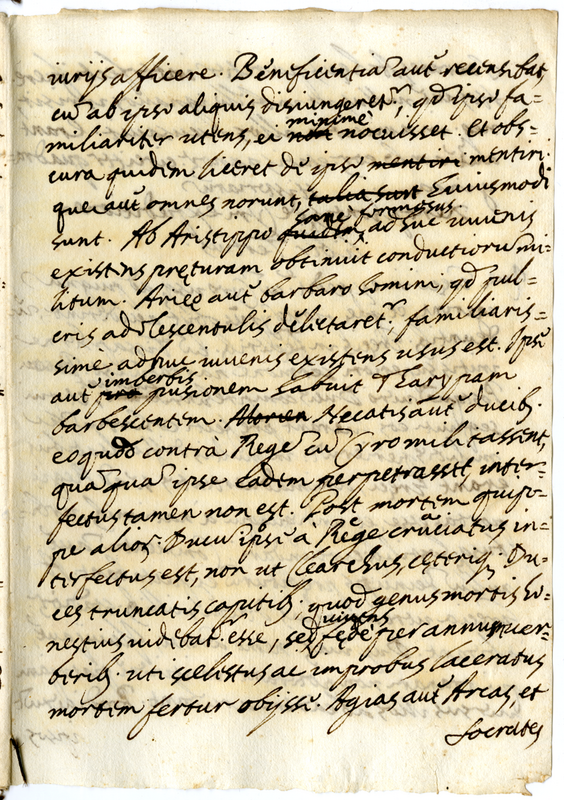 iurijs afficere. Beneficentiã aut̃ recensebat
cũ ab ipso aliquis disiungeret̃, qđ ipso fa=
miliariter utens, ei non minimè nocuisset. Et obs=
cura quidem liceret de ipso mentiri mentiri.
quę aut̃ omnes norunt, talia sunt huiusmodi
sunt. Ab Aristippo quidem sane formosus adhuc iuvenis
existens pręturam obtinuit conductiorũ mi=
litum. Arięo aut̃ barbaro homini, qđ pul=
cris adolescentulis delectaret̃, familiaris=
sime adhuc iuvenis existens usus est. Ipse
aut̃ imberbis pusionem habuit Tharypam
barbescentem. Necatis aut̃ ducib.
eo quod contrà Regẽ cũ Cyro militassent,
quãquã ipse eadem perpetrasset, inter=
fectus tamen non est. Post mortem quip=
pe alior. Ducũ ipse à Rege cruciatus in=
terfectus est, non ut Clearchus, ceteriq. Du=
ces truncatis capitib. quod genus mortis ho=
nestius videbat̃ esse, sed vivens fędè per annum ver=
berib. uti scelestus ac improbus laceratus
mortem fertur obijsse. Agias aut̃ Arcas, et
Socrates